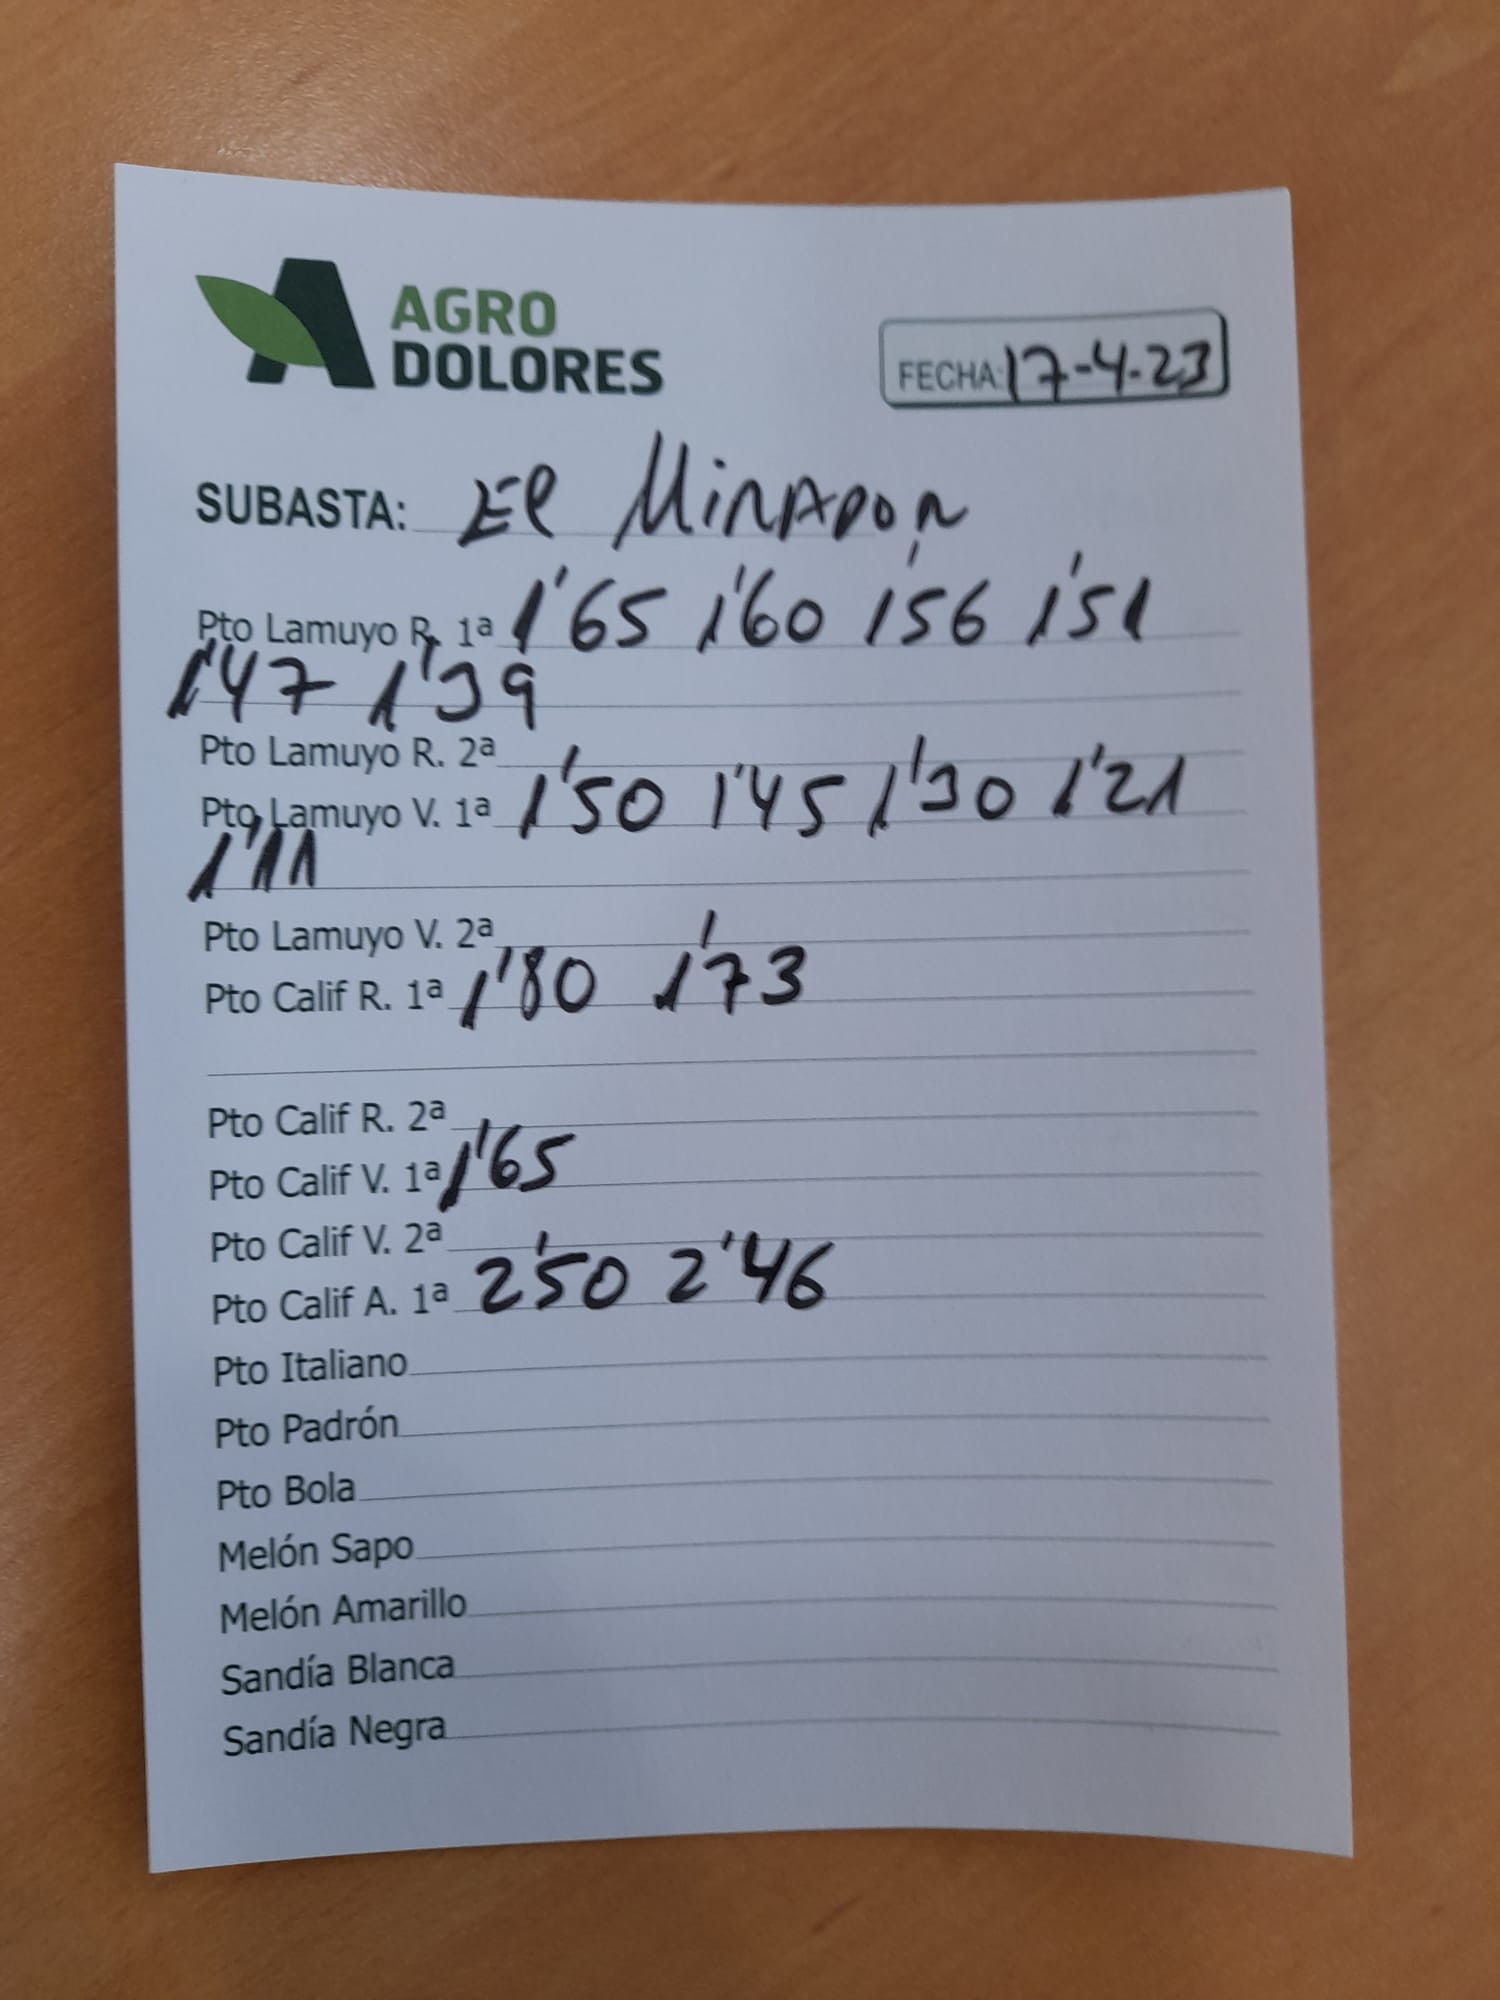 AGRO
DOLORES
FECHA: 17-4-23
SUBASTA: El MiRADOR
Pto Lamuyo R. 1ª 1'65 1'60 1'56 1'51
1'47 1'39
Pto Lamuyo R. 2ª
Pto Lamuyo V. 1ª 1'50 1'45 1'30 1'21
1'11
Pto Lamuyo V. 2ª
Pto Calif R. 1ª 1'80 1'73
Pto Calif R. 2ª
Pto Calif V. 1ª 1'65
Pto Calif V. 2ª
Pto Calif A. 1ª 2'50 2'46
Pto Italiano
Pto Padrón
Pto Bola
Melón Sapo
Melón Amarillo
Sandía Blanca
Sandía Negra